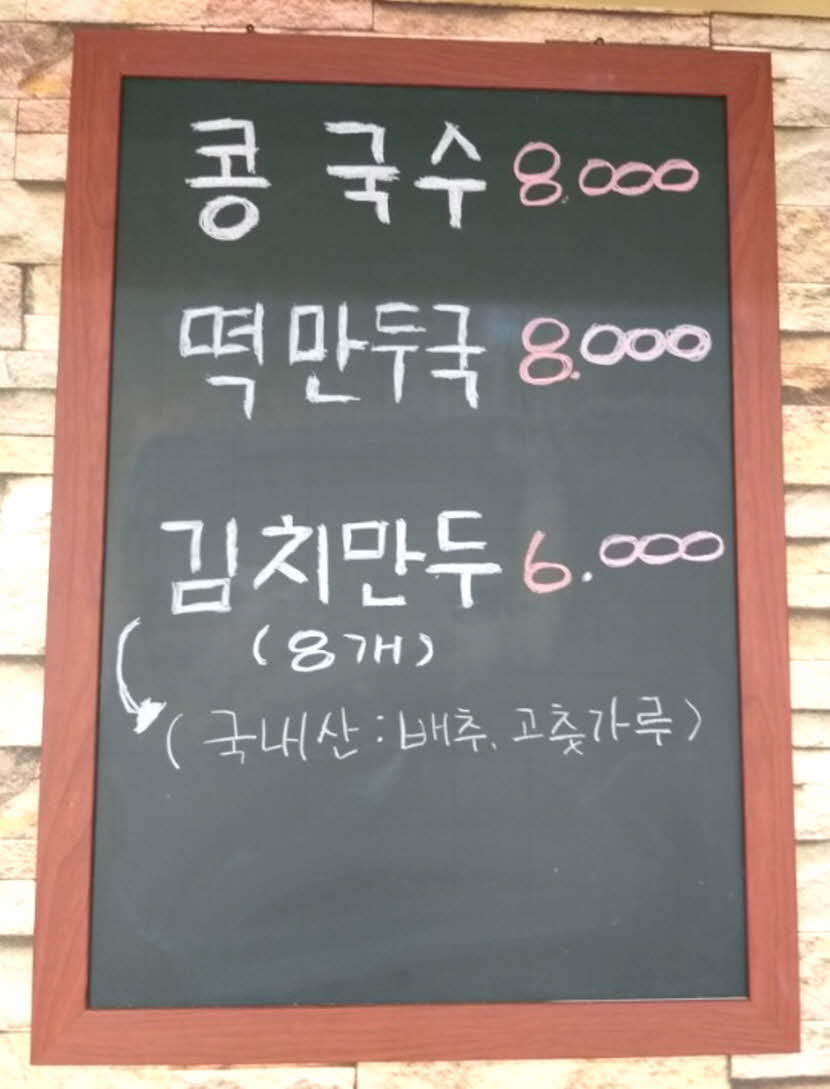 콩 국수 8.000
떡만두국 8.000
김치만두 6.000
(8개)
(국내산 : 배추, 고춧가루)